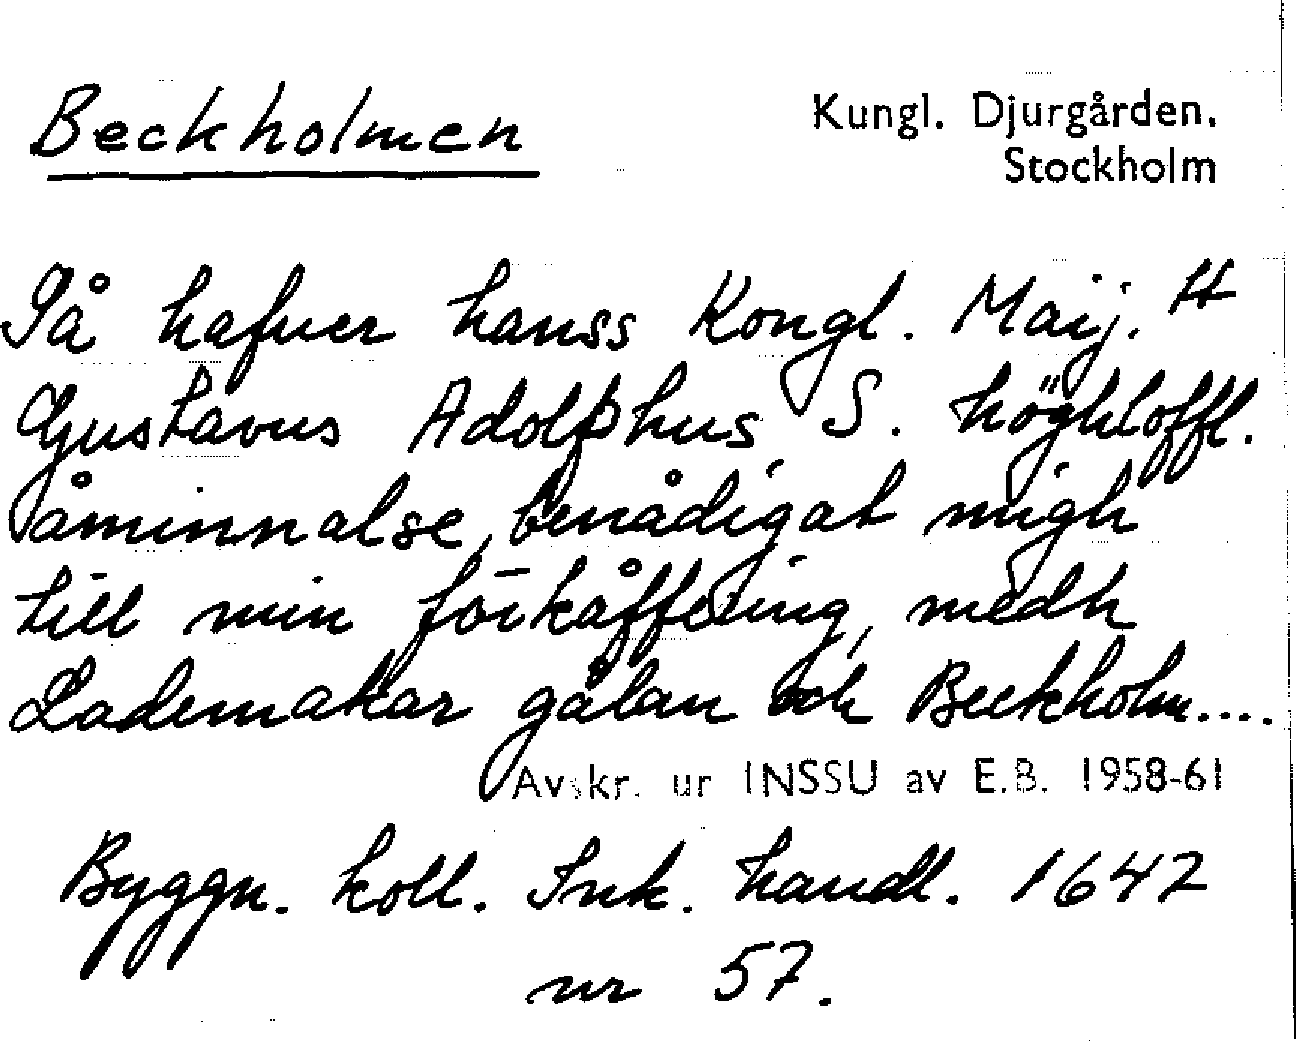 Beckholmen
Kungl. Djurgården.
Stockholm
Så hafver hanss Kongl. Maij.tt
Gustavus Adolphus S. höghloffl.
åminnalse, benådigat migh
till min förkåffering, medh
Lademakar gålan och Beckholm....
Avskr. ur INSSU av E.B. 1958-61
Byggn. koll. Ink. handl. 1642
nr 57.